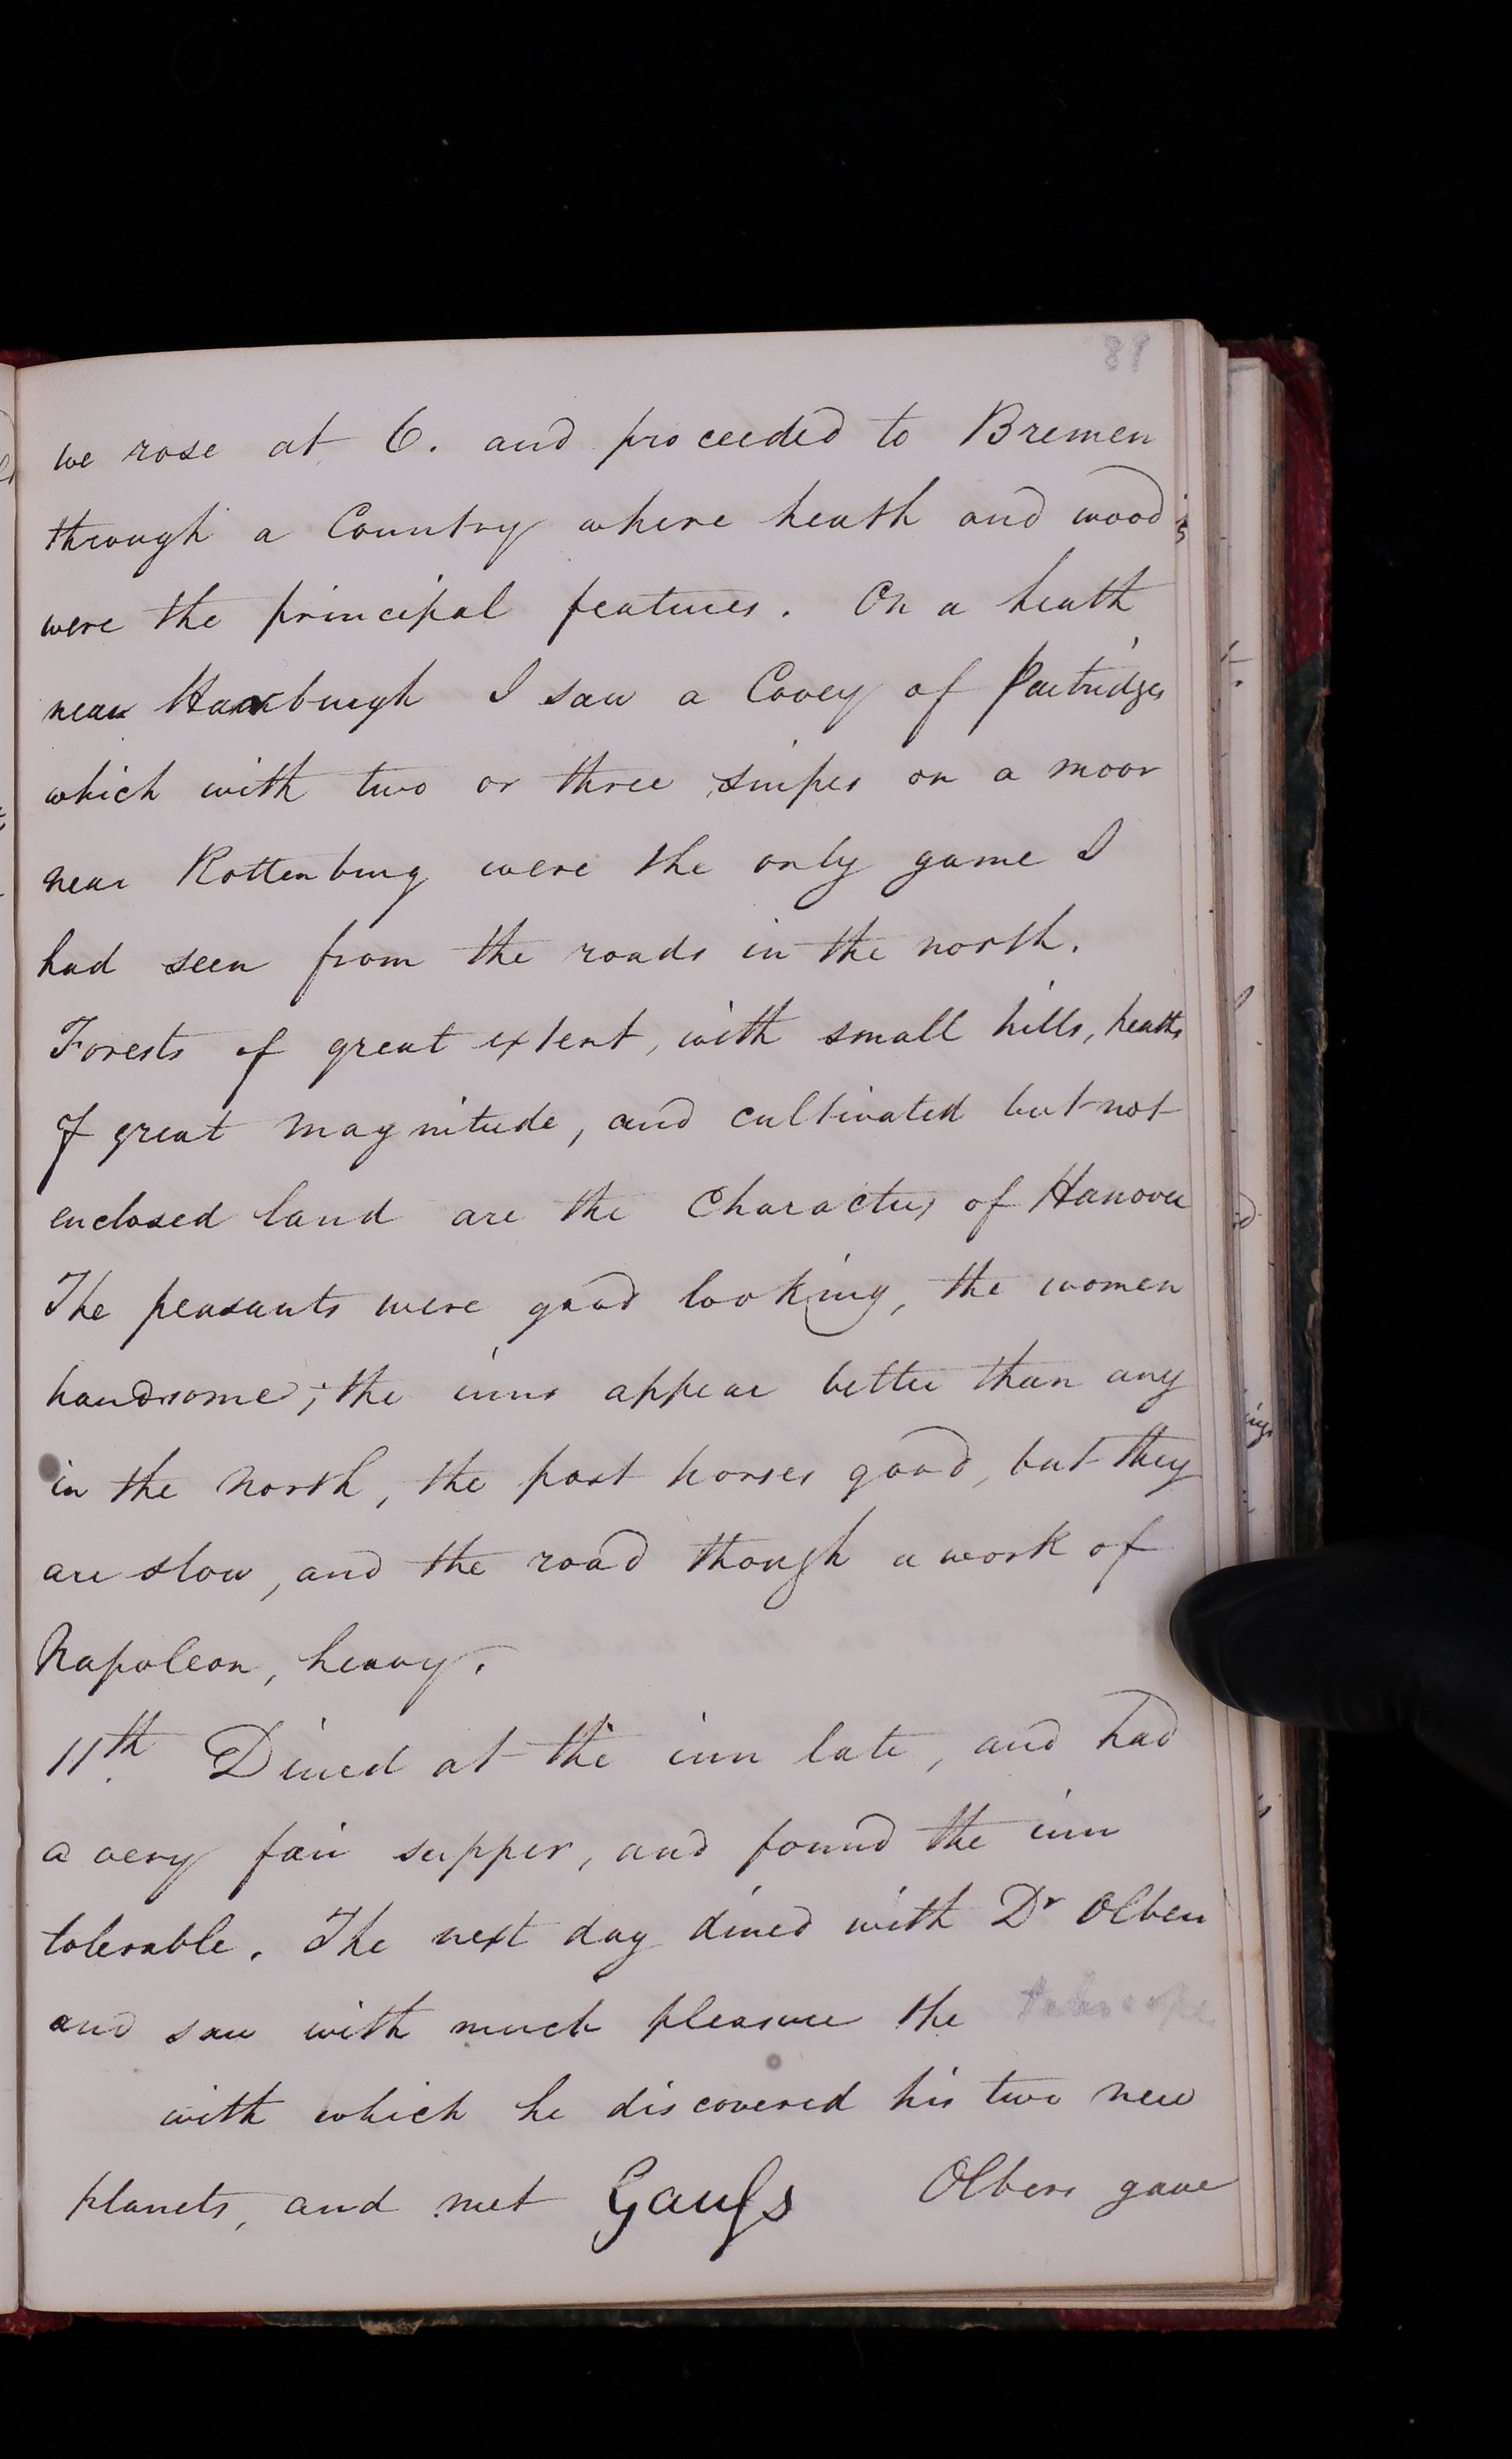 89
we rose at 6. and proceeded to Bremen
through a Country where heath and wood
were the principal features. On a heath
near Harburgh I saw a Covey of Partridges
which with two or three snipes on a moor
near Rottenburg were the only game I
had seen from the roads in the north.
Forests of great extent, with small hills, heaths
of great magnitude, and cultivated but not
enclosed land are the Characters of Hanover
The peasants were good looking, the women
handsome; the inns appear better than any
in the north, the post horses good, but they
are slow, and the road though a work of
Napoleon, heavy.
11th. Dined at the inn late, and had
a very fair supper, and found the inn
tolerable. The next day dined with Dr Olbers
and saw with much pleasure the telescope
with which he discovered his two new
planets, and met Gauſs Olbers gave